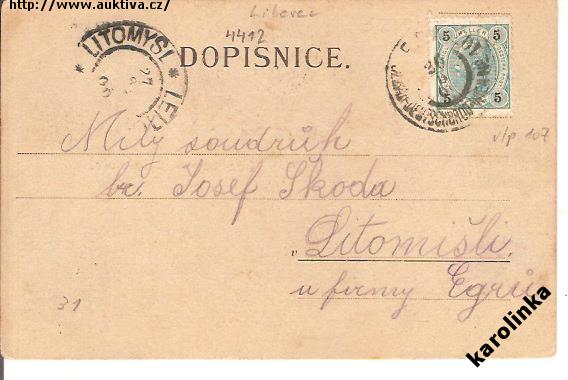 http://www.auktiva.cz/
Liberec
4412
LITOMYŠL
27
DOPISNICE.
5 5
HELLER
5 5
v/p. 107
Milý soudruh
br. Josef Škoda
Litomišli.
u firmy Egrů
31
karolinka